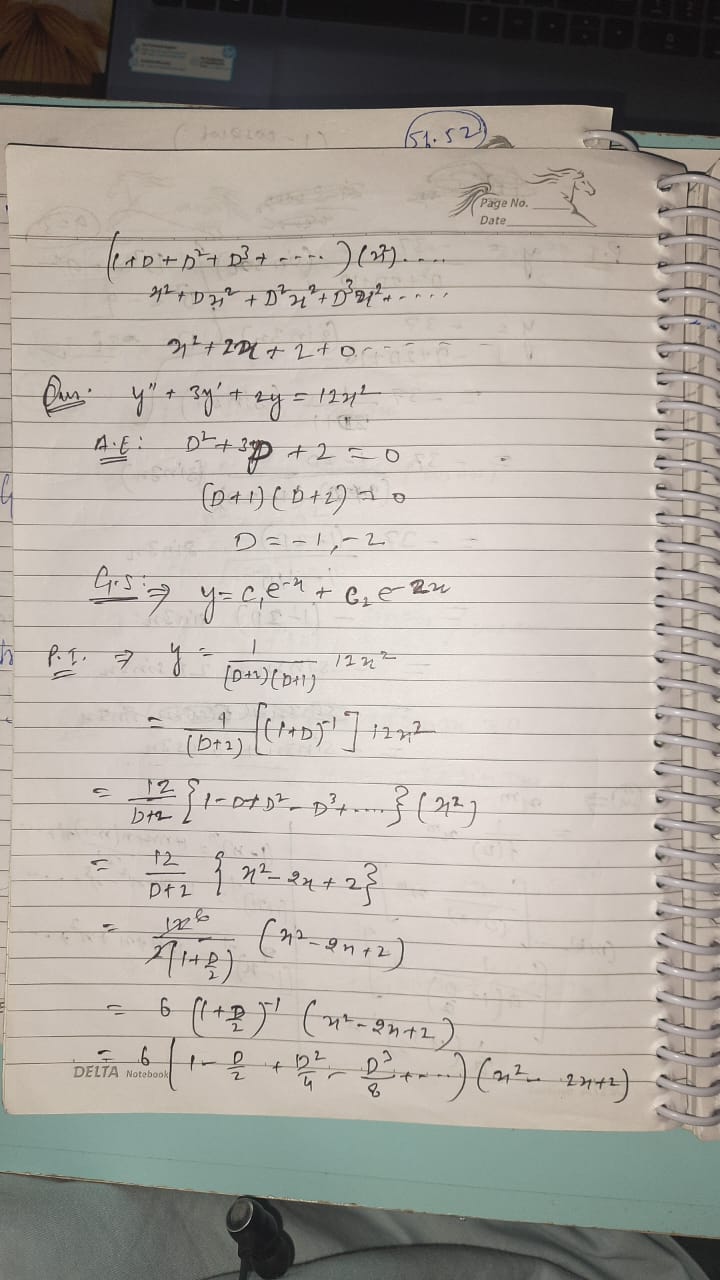 51.52
Page No.
Date
(1+D+D²+D³+----)(x²)....
x²+Dx²+D²x²+D³x²+....
x²+2x+2+0-----
Ques. y"+3y'+2y=12x²
A.E: D²+3D+2=0
(D+1)(D+2)=0
D=-1,-2
G.S:⇒ y=C₁e⁻ˣ+C₂e⁻²ˣ
P.I. ⇒ y = 1/(D+2)(D+1) 12x²
= 1/(D+2) [(1+D)⁻¹] 12x²
= 12/D+2 {1-D+D²-D³+.....}(x²)
= 12/D+2 {x²-2x+2}
= 12 6/2(1+D/2) (x²-2x+2)
= 6 (1+D/2)⁻¹ (x²-2x+2)
= 6 (1-D/2+D²/4-D³/8+---)(x²-2x+2)
DELTA Notebook